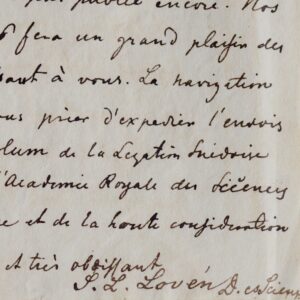 plus publié encore. Nos
fera un grand plaisir des
sant à vous. La navigation
ous prier d'expedier l'envois
olum de la Legation Suédoise
l'Academie Royale des Sciences
e et de la haute consideration
et très obéissant
S. L. Lovén D. es Scien